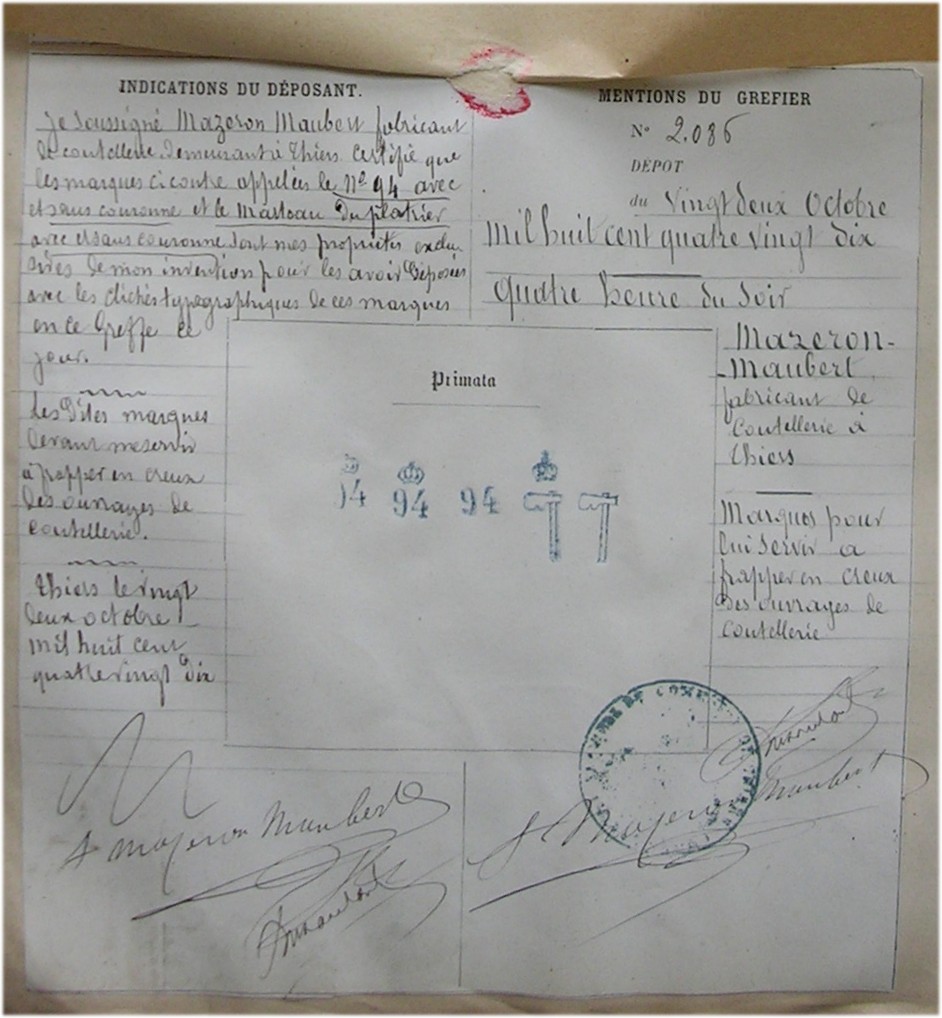 INDICATIONS DU DÉPOSANT.
Je soussigné Mazeron Maubert fabricant
de coutellerie demeurant à Thiers certifie que
les marques ci contre appelées le Nº 94 avec
et sans couronne et le Marteau du platrier
avec et sans couronne sont mes propriétés exclu
sives de mon invention pour les avoir déposées
avec les clichés typographiques de ces marques
en ce Greffe ce
jour.
Les dites marques
devant me servir
à frapper en creux
des ouvrages de
coutellerie.
Thiers le vingt
deux octobre
mil huit cent
quatre vingt dix
MENTIONS DU GREFIER
Nº 2.086
DÉPOT
du Vingt deux Octobre
Mil huit cent quatre vingt dix
quatre heure du soir
Mazeron-
-Maubert
fabricant de
Coutellerie à
Thiers
Marques pour
lui servir a
frapper en creux
des ouvrages de
coutellerie
Primata
94 94 94
Mazeron Maubert
Mazeron Maubert